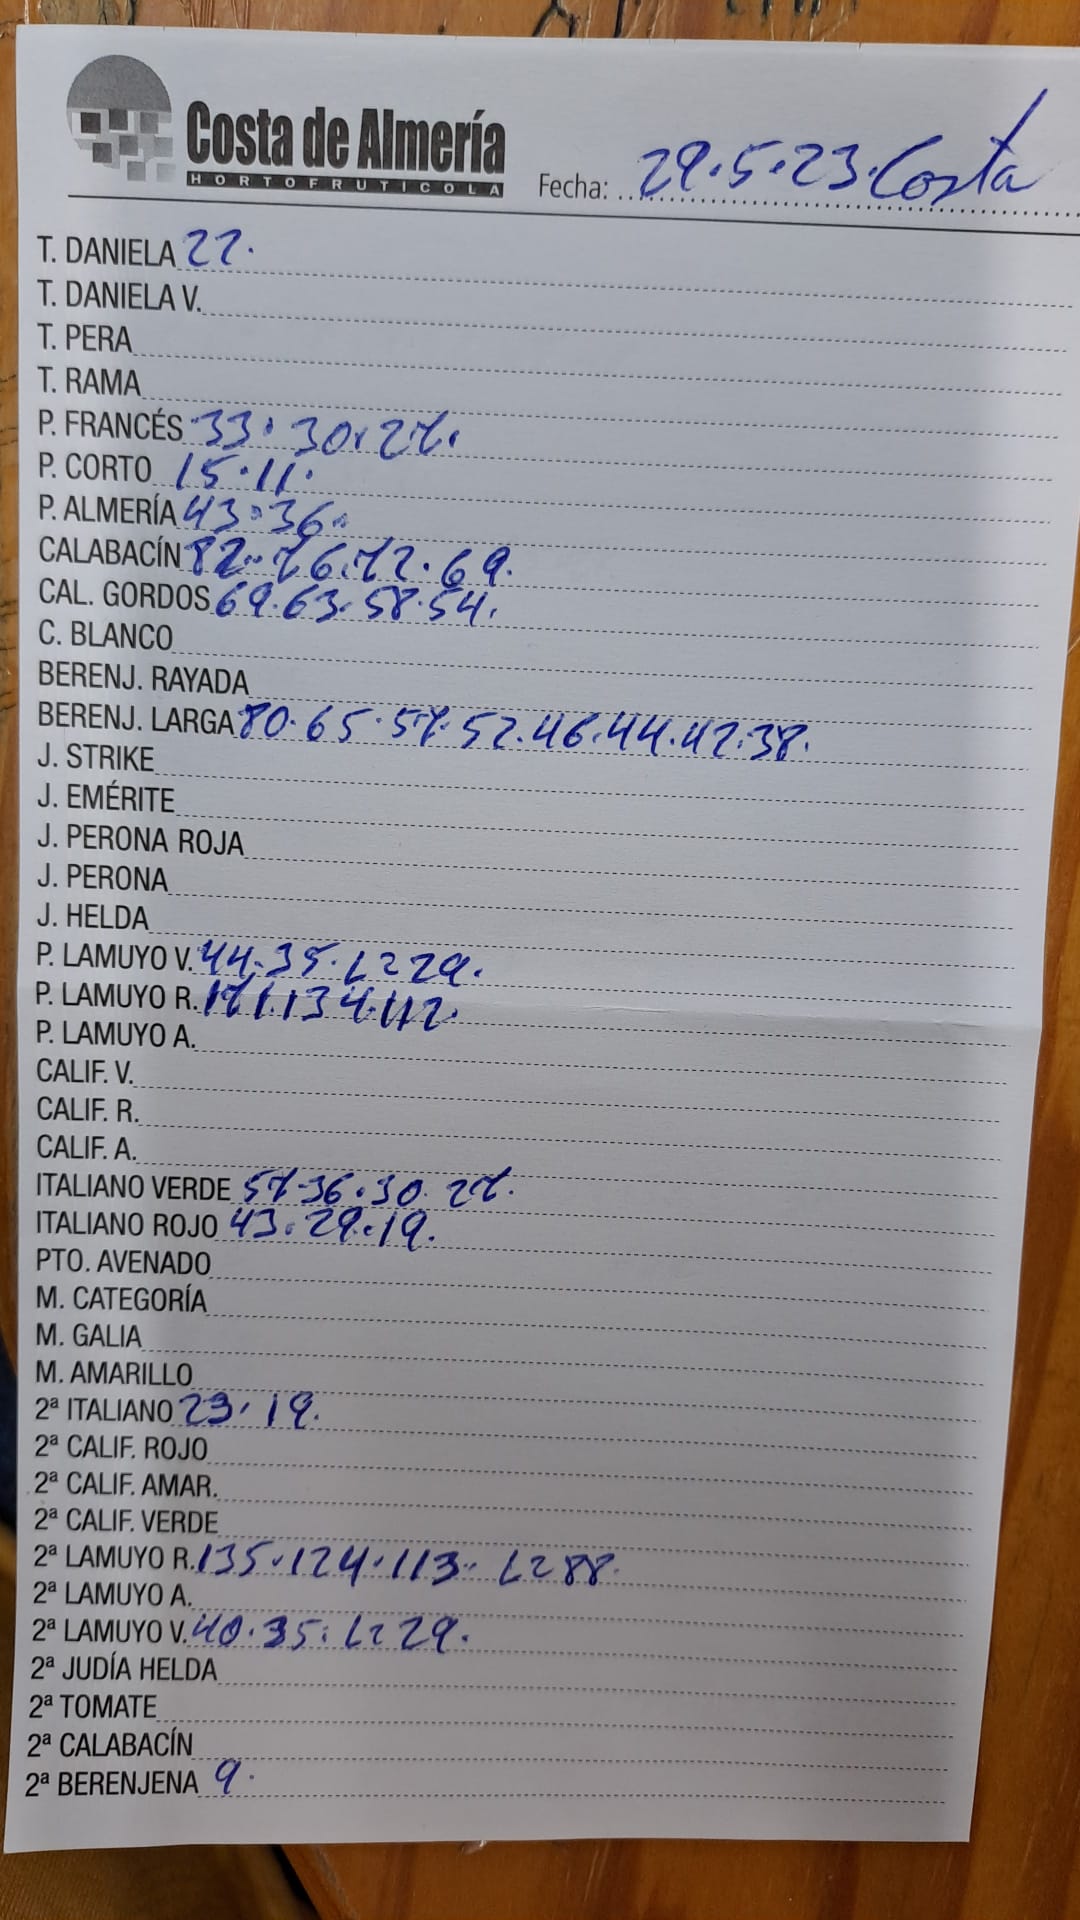 Costa de Almería
HORTOFRUTICOLA
Fecha: 29.5.23. Costa
T. DANIELA 22.
T. DANIELA V.
T. PERA
T. RAMA
P. FRANCÉS 33. 30. 27.
P. CORTO 15.11.
P. ALMERÍA 43.36.
CALABACÍN 82.76.72.69.
CAL. GORDOS 69.63.58.54.
C. BLANCO
BERENJ. RAYADA
BERENJ. LARGA 80.65.57.52.46.44.42.38.
J. STRIKE
J. EMÉRITE
J. PERONA ROJA
J. PERONA
J. HELDA
P. LAMUYO V. 44.35. L 29.
P. LAMUYO R. 171.134.112.
P. LAMUYO A.
CALIF. V.
CALIF. R.
CALIF. A.
ITALIANO VERDE 57.36.30. 27.
ITALIANO ROJO 43.29.19.
PTO. AVENADO
M. CATEGORÍA
M. GALIA
M. AMARILLO
2ª ITALIANO 23.19.
2ª CALIF. ROJO
2ª CALIF. AMAR.
2ª CALIF. VERDE
2ª LAMUYO R. 135.124.113. L 88.
2ª LAMUYO A.
2ª LAMUYO V. 40.35. L 29.
2ª JUDÍA HELDA
2ª TOMATE
2ª CALABACÍN
2ª BERENJENA 9.